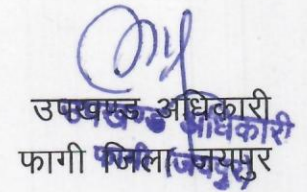 उपखण्ड अधिकारी
फागी जिला जयपुर
उपखण्ड अधिकारी
फागी (जयपुर)